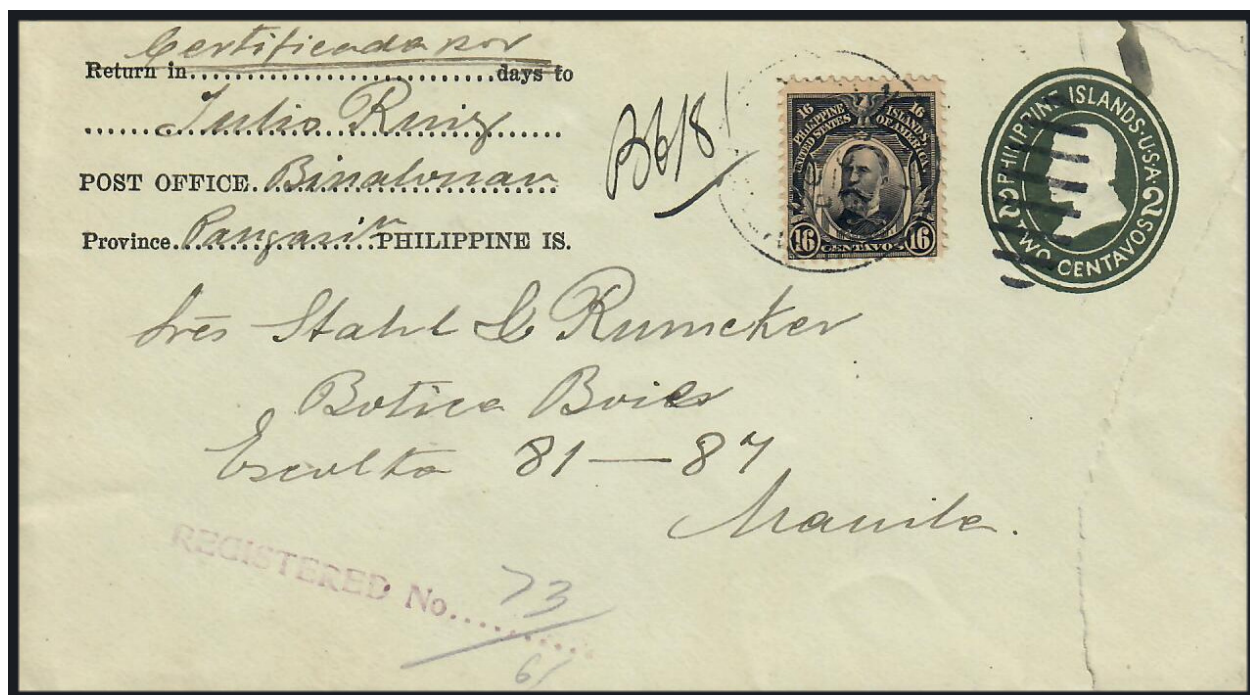 Certificada por
Return in..............................days to
Julio Ruiz
POST OFFICE. Binalonan
Province. Pangasin PHILIPPINE IS.
16 16
PHILIPPINE ISLANDS
UNITED STATES OF AMERICA
16 CENTAVOS 16
PHILIPPINE ISLANDS·U·S·A·
2 TWO CENTAVOS 2
Srēs Stahl & Rumcker
Botica Boies
Escolta 81—87
Manila.
REGISTERED No. 73
61